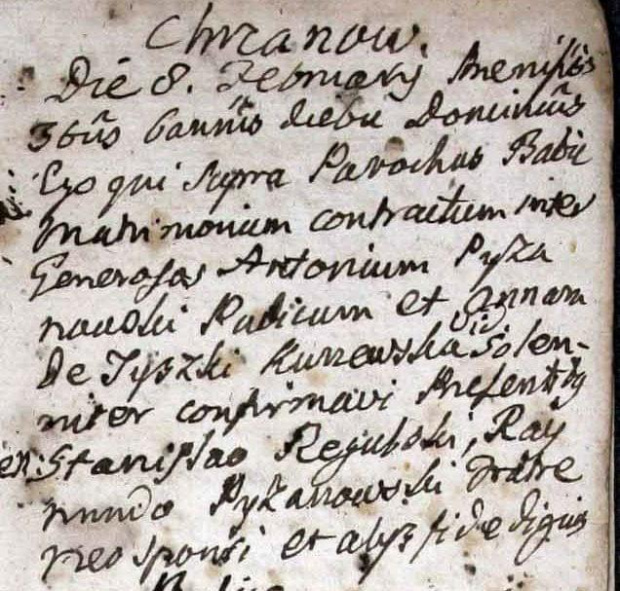 Chrzanow.
Die 8. Februarij praemissis
3bus bannis diebus Dominicis
Ego qui supra Parochus Babic
Matrimonium contractum inter
Generosos Antonium Pyza
nowski Pudicum et Annam
de Tyszki Kurzewska Solen-
niter confirmavi Presentibus
Stanislao Regulski, Ray
mundo Pyzanowski Fratre
neo sponsi et alys fide dignis